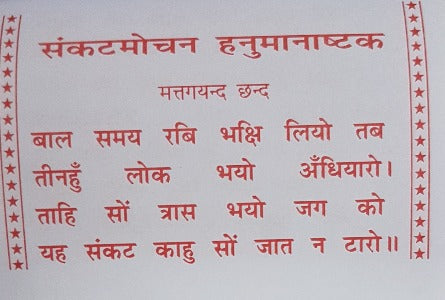 संकटमोचन हनुमानाष्टक
मत्तगयन्द छन्द
बाल समय रबि भक्षि लियो तब
तीनहुँ लोक भयो अँधियारो।
ताहि सों त्रास भयो जग को
यह संकट काहु सों जात न टारो॥